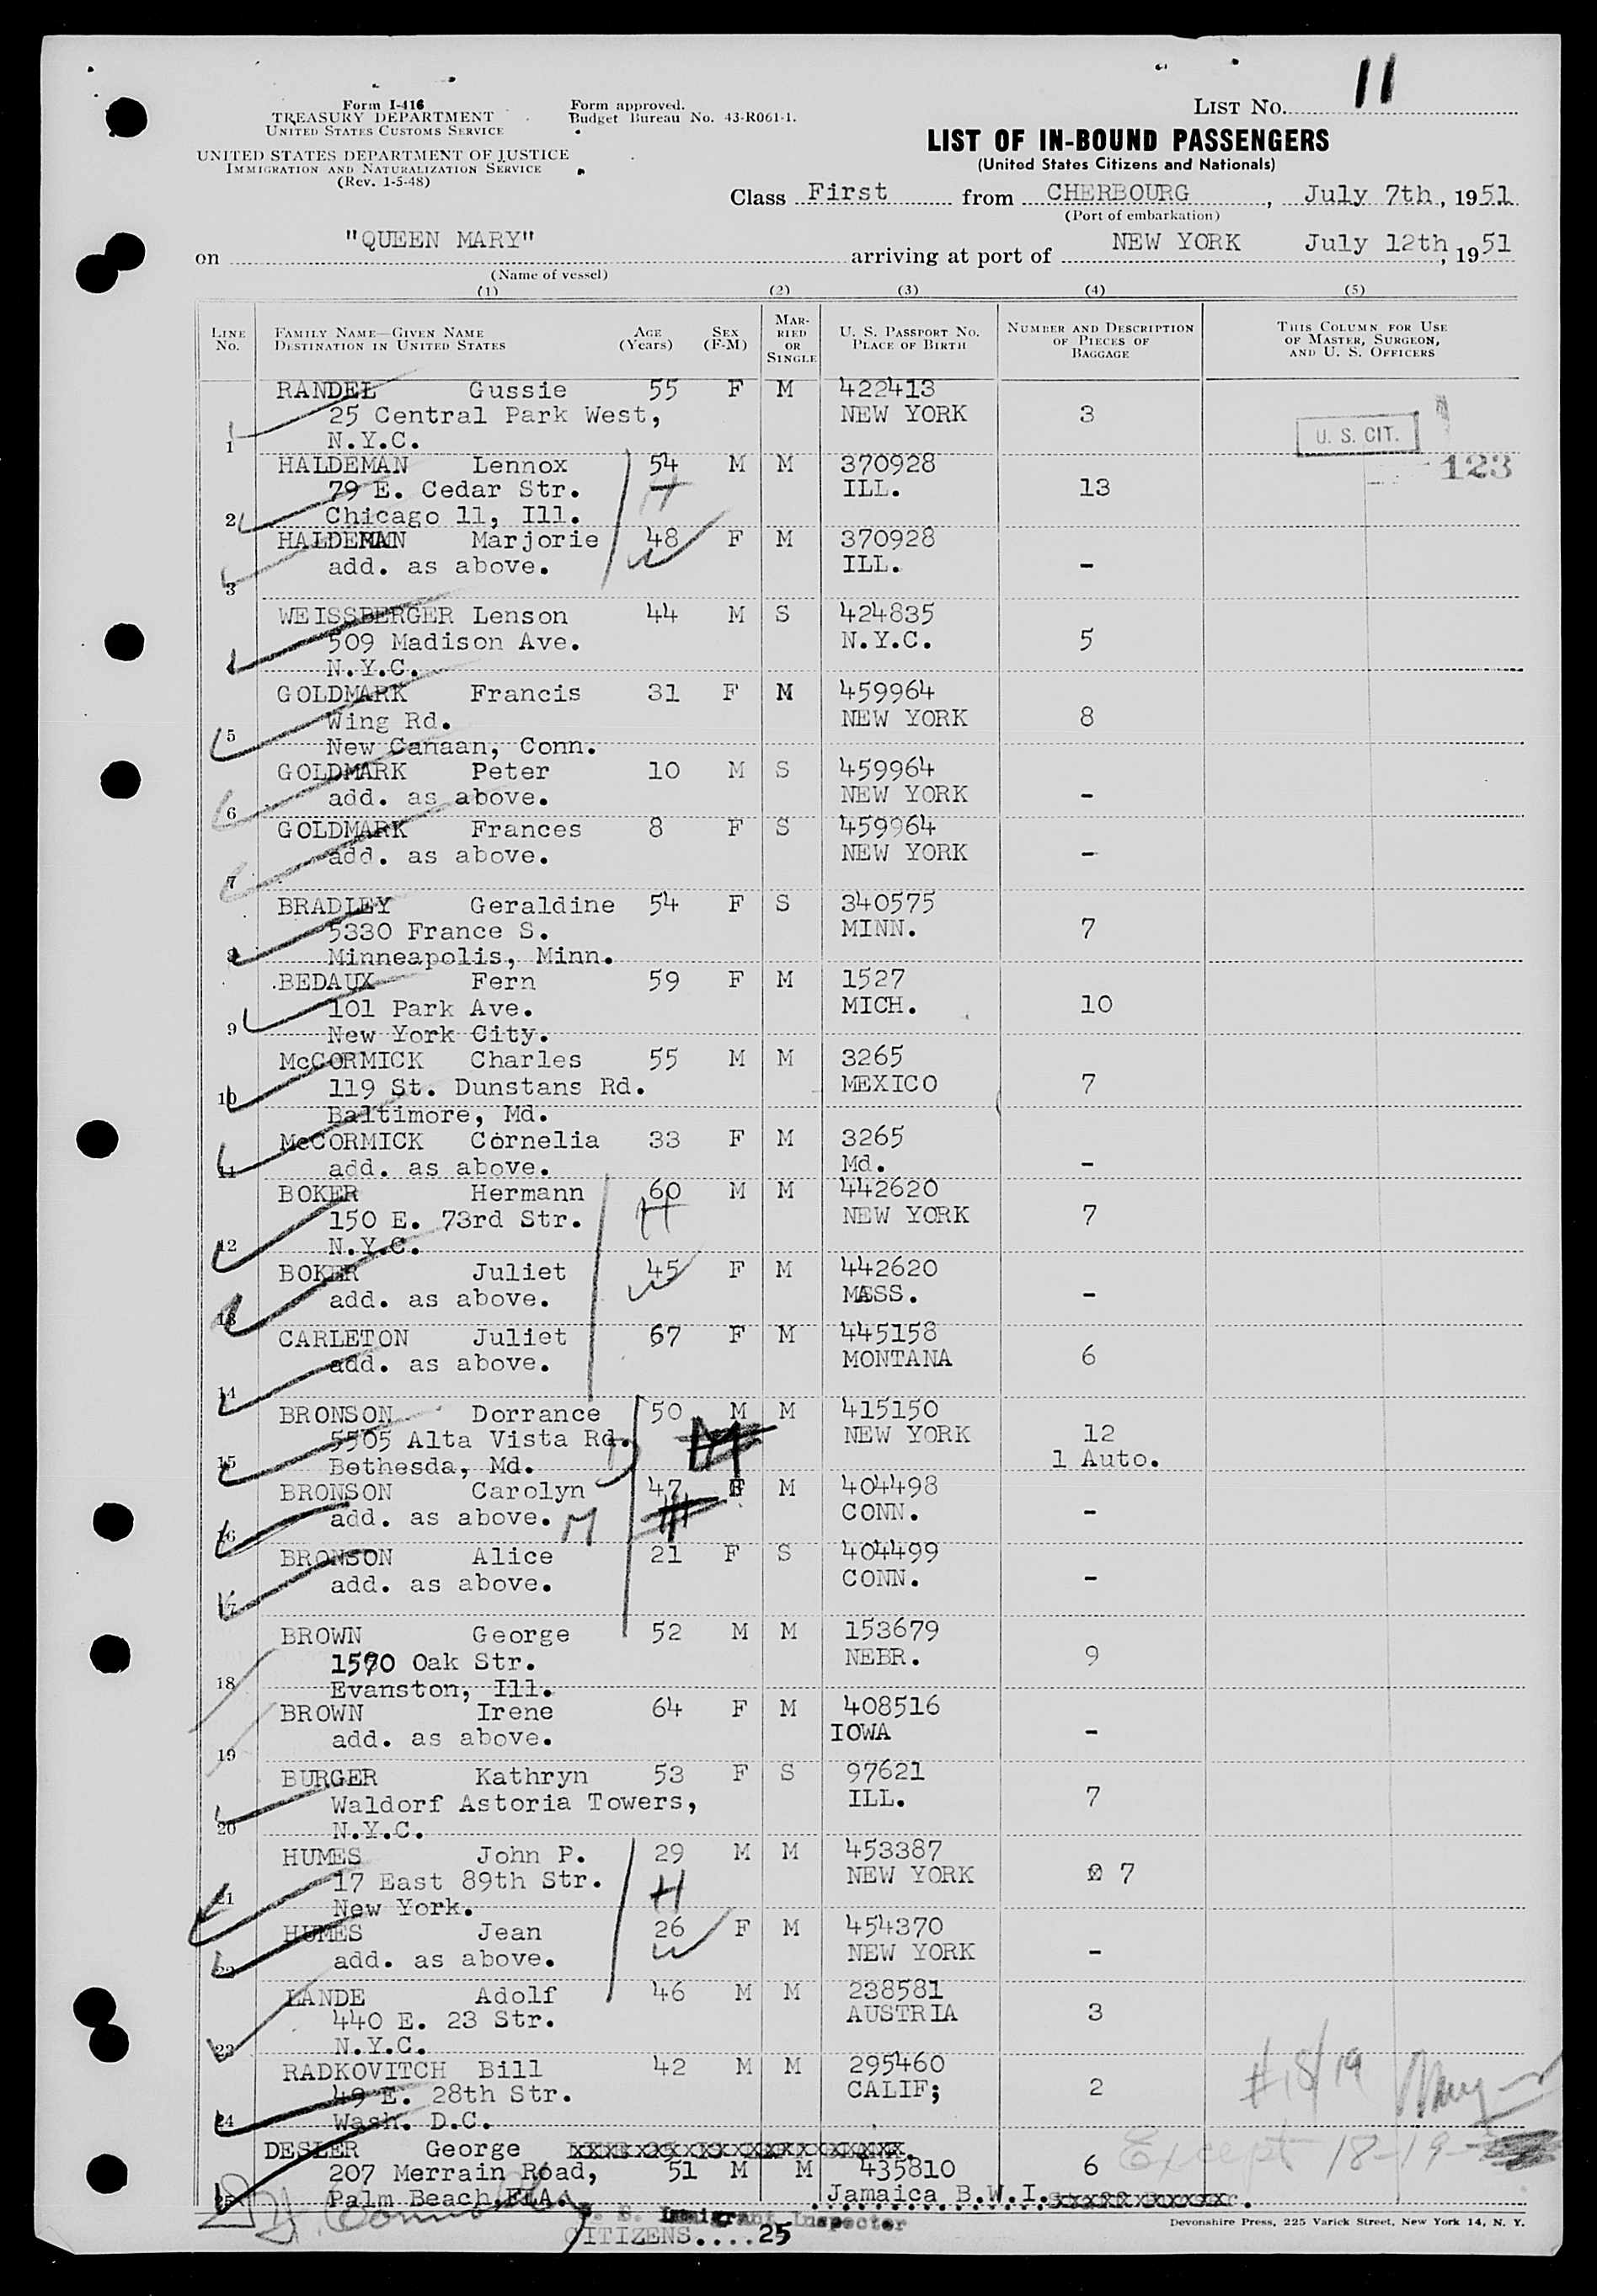 LIST No. 11
Form I-416
TREASURY DEPARTMENT
UNITED STATES CUSTOMS SERVICE
UNITED STATES DEPARTMENT OF JUSTICE
IMMIGRATION AND NATURALIZATION SERVICE
(Rev. 1-5-48)
Form approved.
Budget Bureau No. 43-R061-1.
LIST OF IN-BOUND PASSENGERS
(United States Citizens and Nationals)
Class First from CHERBOURG, July 7th, 1951
(Port of embarkation)
on "QUEEN MARY" arriving at port of NEW YORK July 12th, 1951
(Name of vessel)
(1) (2) (3) (4) (5)
LINE No. FAMILY NAME—GIVEN NAME DESTINATION IN UNITED STATES AGE (Years) SEX (F-M) MARRIED OR SINGLE U. S. PASSPORT No. PLACE OF BIRTH NUMBER AND DESCRIPTION OF PIECES OF BAGGAGE THIS COLUMN FOR USE OF MASTER, SURGEON, AND U. S. OFFICERS
RANDEL Gussie 55 F M 422413
25 Central Park West, NEW YORK 3
1 N.Y.C.
U. S. CIT.
123
HALDEMAN Lennox 54 M M 370928
79 E. Cedar Str. H ILL. 13
2 Chicago 11, Ill.
HALDEMAN Marjorie 48 F M 370928
add. as above. W ILL. -
3
WEISSBERGER Lenson 44 M S 424835
509 Madison Ave. N.Y.C. 5
4 N.Y.C.
GOLDMARK Francis 31 F M 459964
Wing Rd. NEW YORK 8
5 New Canaan, Conn.
GOLDMARK Peter 10 M S 459964
add. as above. NEW YORK -
6
GOLDMARK Frances 8 F S 459964
add. as above. NEW YORK -
7
BRADLEY Geraldine 54 F S 340575
5330 France S. MINN. 7
8 Minneapolis, Minn.
BEDAUX Fern 59 F M 1527
101 Park Ave. MICH. 10
9 New York City.
McCORMICK Charles 55 M M 3265
119 St. Dunstans Rd. MEXICO 7
10 Baltimore, Md.
McCORMICK Cornelia 33 F M 3265
11 add. as above. Md. -
BOKER Hermann 60 M M 442620
150 E. 73rd Str. H NEW YORK 7
12 N.Y.C.
BOKER Juliet 45 F M 442620
add. as above. W MASS. -
13
CARLETON Juliet 67 F M 445158
add. as above. MONTANA 6
14
BRONSON Dorrance 50 M M 415150
5505 Alta Vista Rd. NEW YORK 12
15 Bethesda, Md. 1 Auto.
BRONSON Carolyn 47 F M 404498
add. as above. M CONN. -
16
BRONSON Alice 21 F S 404499
add. as above. CONN. -
17
BROWN George 52 M M 153679
1570 Oak Str. NEBR. 9
18 Evanston, Ill.
BROWN Irene 64 F M 408516
add. as above. IOWA -
19
BURGER Kathryn 53 F S 97621
Waldorf Astoria Towers, ILL. 7
20 N.Y.C.
HUMES John P. 29 M M 453387
17 East 89th Str. H NEW YORK 7
21 New York.
HUMES Jean 26 F M 454370
add. as above. W NEW YORK -
22
LANDE Adolf 46 M M 238581
440 E. 23 Str. AUSTRIA 3
23 N.Y.C.
RADKOVITCH Bill 42 M M 295460
49 E. 28th Str. CALIF; 2
24 Wash. D.C.
#18/19
DESLER George xxxxxxxxxxxxxxxxxxxxx
207 Merrain Road, 51 M M 435810 6
Except 18-19
25 Palm Beach, FLA. Jamaica B.W.I.
U. S. Immigrant Inspector
CITIZENS....25
Devonshire Press, 225 Varick Street, New York 14, N. Y.